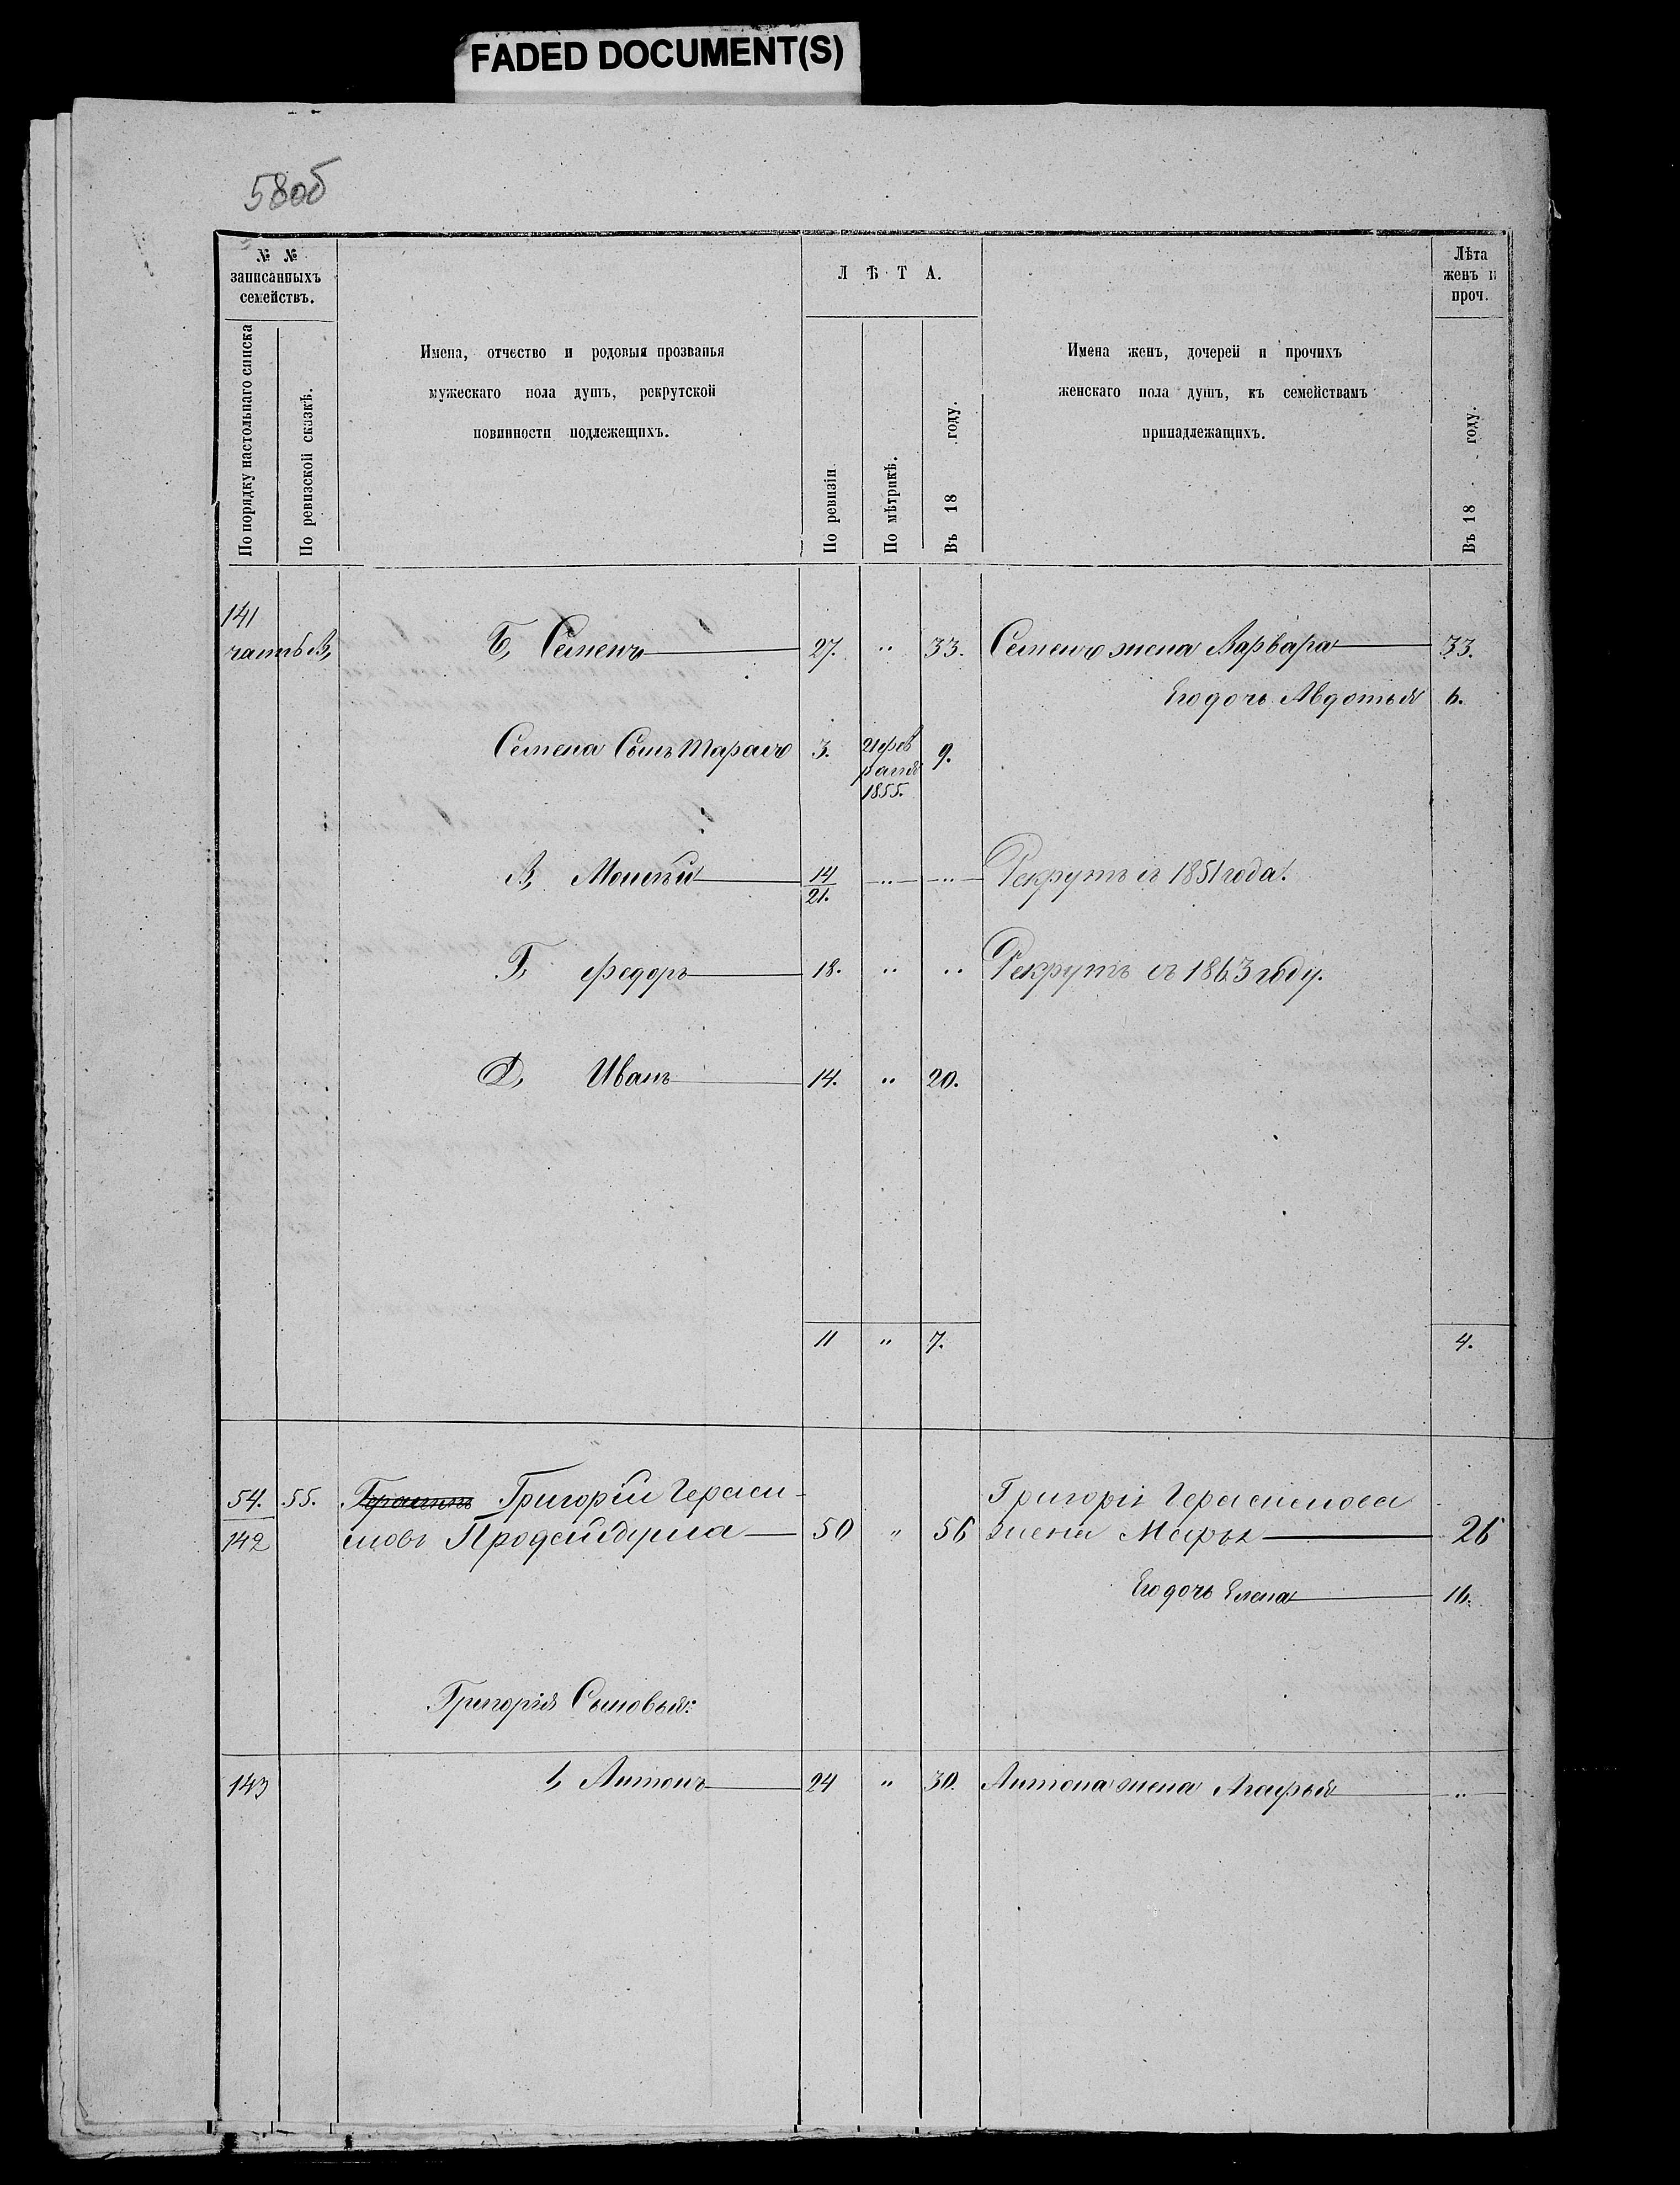 FADED DOCUMENT(S)
58об
№ №
записанныхъ
семействъ.
По порядку настольнаго списка
По ревизской сказкѣ.
Имена, отчество и родовыя прозванья
мужескаго пола душъ, рекрутской
повинности подлежещихъ.
ЛѢТА.
По ревизіи
По мѣтрикѣ.
Въ 18 году.
Имена женъ, дочерей и прочихъ
женскаго пола душъ, къ семействамъ
принадлежащихъ.
Лѣта
женъ и
проч.
Въ 18 году.
141
часть В,
Б, Семенъ 27. " 33. Семена жена Варвара 33.
Его дочь Авдотья 6.
Семена Сынъ Тарасъ 3. 21 фев
раля
1855. 9.
В, 14
21. " " Рекрутъ съ 1851 года.
Г, Федоръ 18. " " Рекрутъ съ 1863 году.
Д, Иванъ 14. " 20.
11 " 7. 4.
54. 55. Григорій Гераси-
142 мовъ 50 " 56
Григорія Герасимова
жена Марья 26
Его дочь Елена 16.
Григорія Сыновья:
143 1, Антонъ 24 " 30. Антона жена Агафья "